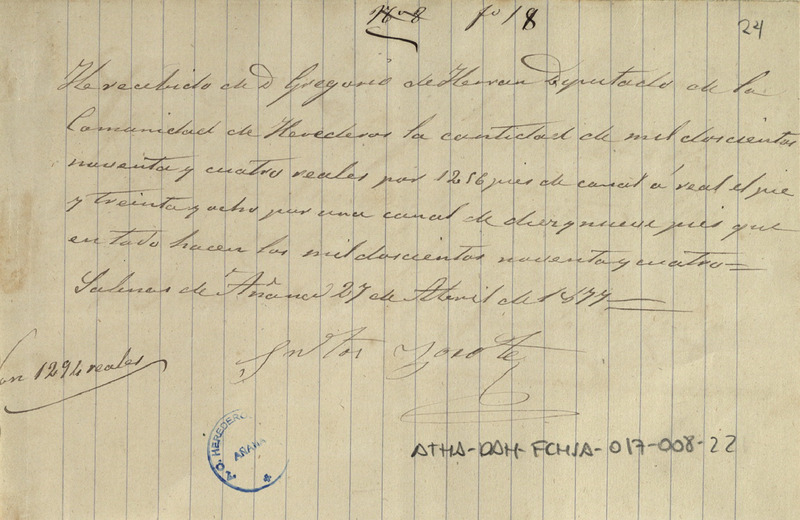 fo 18
24
He recibido de D Gregorio de Herran Diputado de la
Comunidad de Herederos la cantidad de mil doscientos
noventa y cuatro reales por 1256 pies de canal á real el pie
y treinta y ocho por una canal de diez y nueve pies que
en todo hacen los mil doscientos noventa y cuatro
Salinas de Añana 27 de Abril de 1877
Son 1294 reales
A. C. HEREDEROS
AÑANA
ATHA-DAH-FCHSA-017-008-22